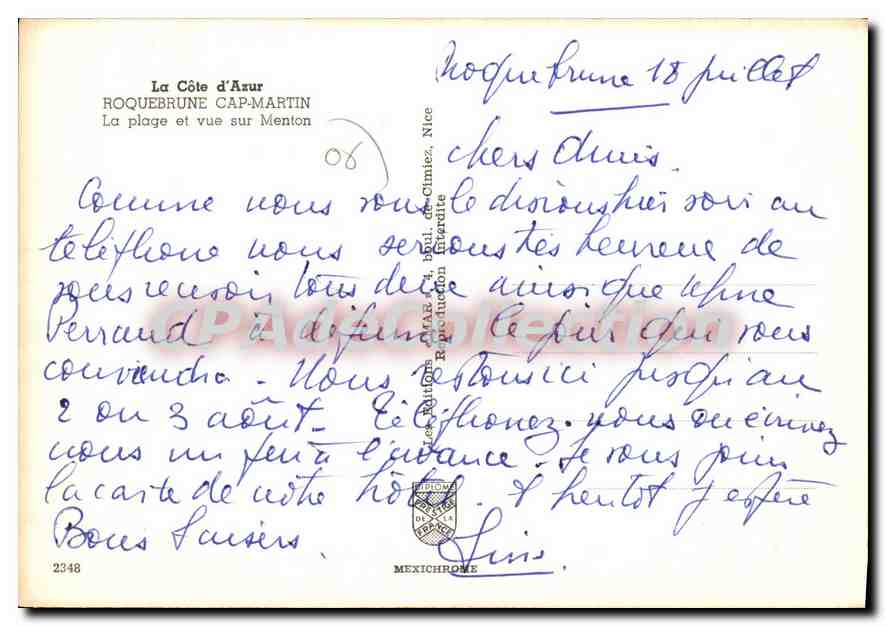 La Côte d'Azur
ROQUEBRUNE CAP-MARTIN
La plage et vue sur Menton
06
Roquebrune 18 juillet
Chers Amis.
Comme nous vous le disions hier soir au
téléphone nous serions très heureux de
vous revoir tous deux ainsi que Mme
Perraud à déjeuner le jour qui vous
conviendra. Nous restons ici jusqu'au
2 ou 3 août. Téléphonez-nous ou écrivez
nous un peu à l'avance. Je vous joins
la carte de notre hôtel. A bientôt j'espère
Bons baisers.
Les Editions « MAR », 4, boul. de Cimiez, Nice
Reproduction Interdite
DIPLOME
PRESTIGE
DE LA
FRANCE
2348
MEXICHROME
CPAdeCollection